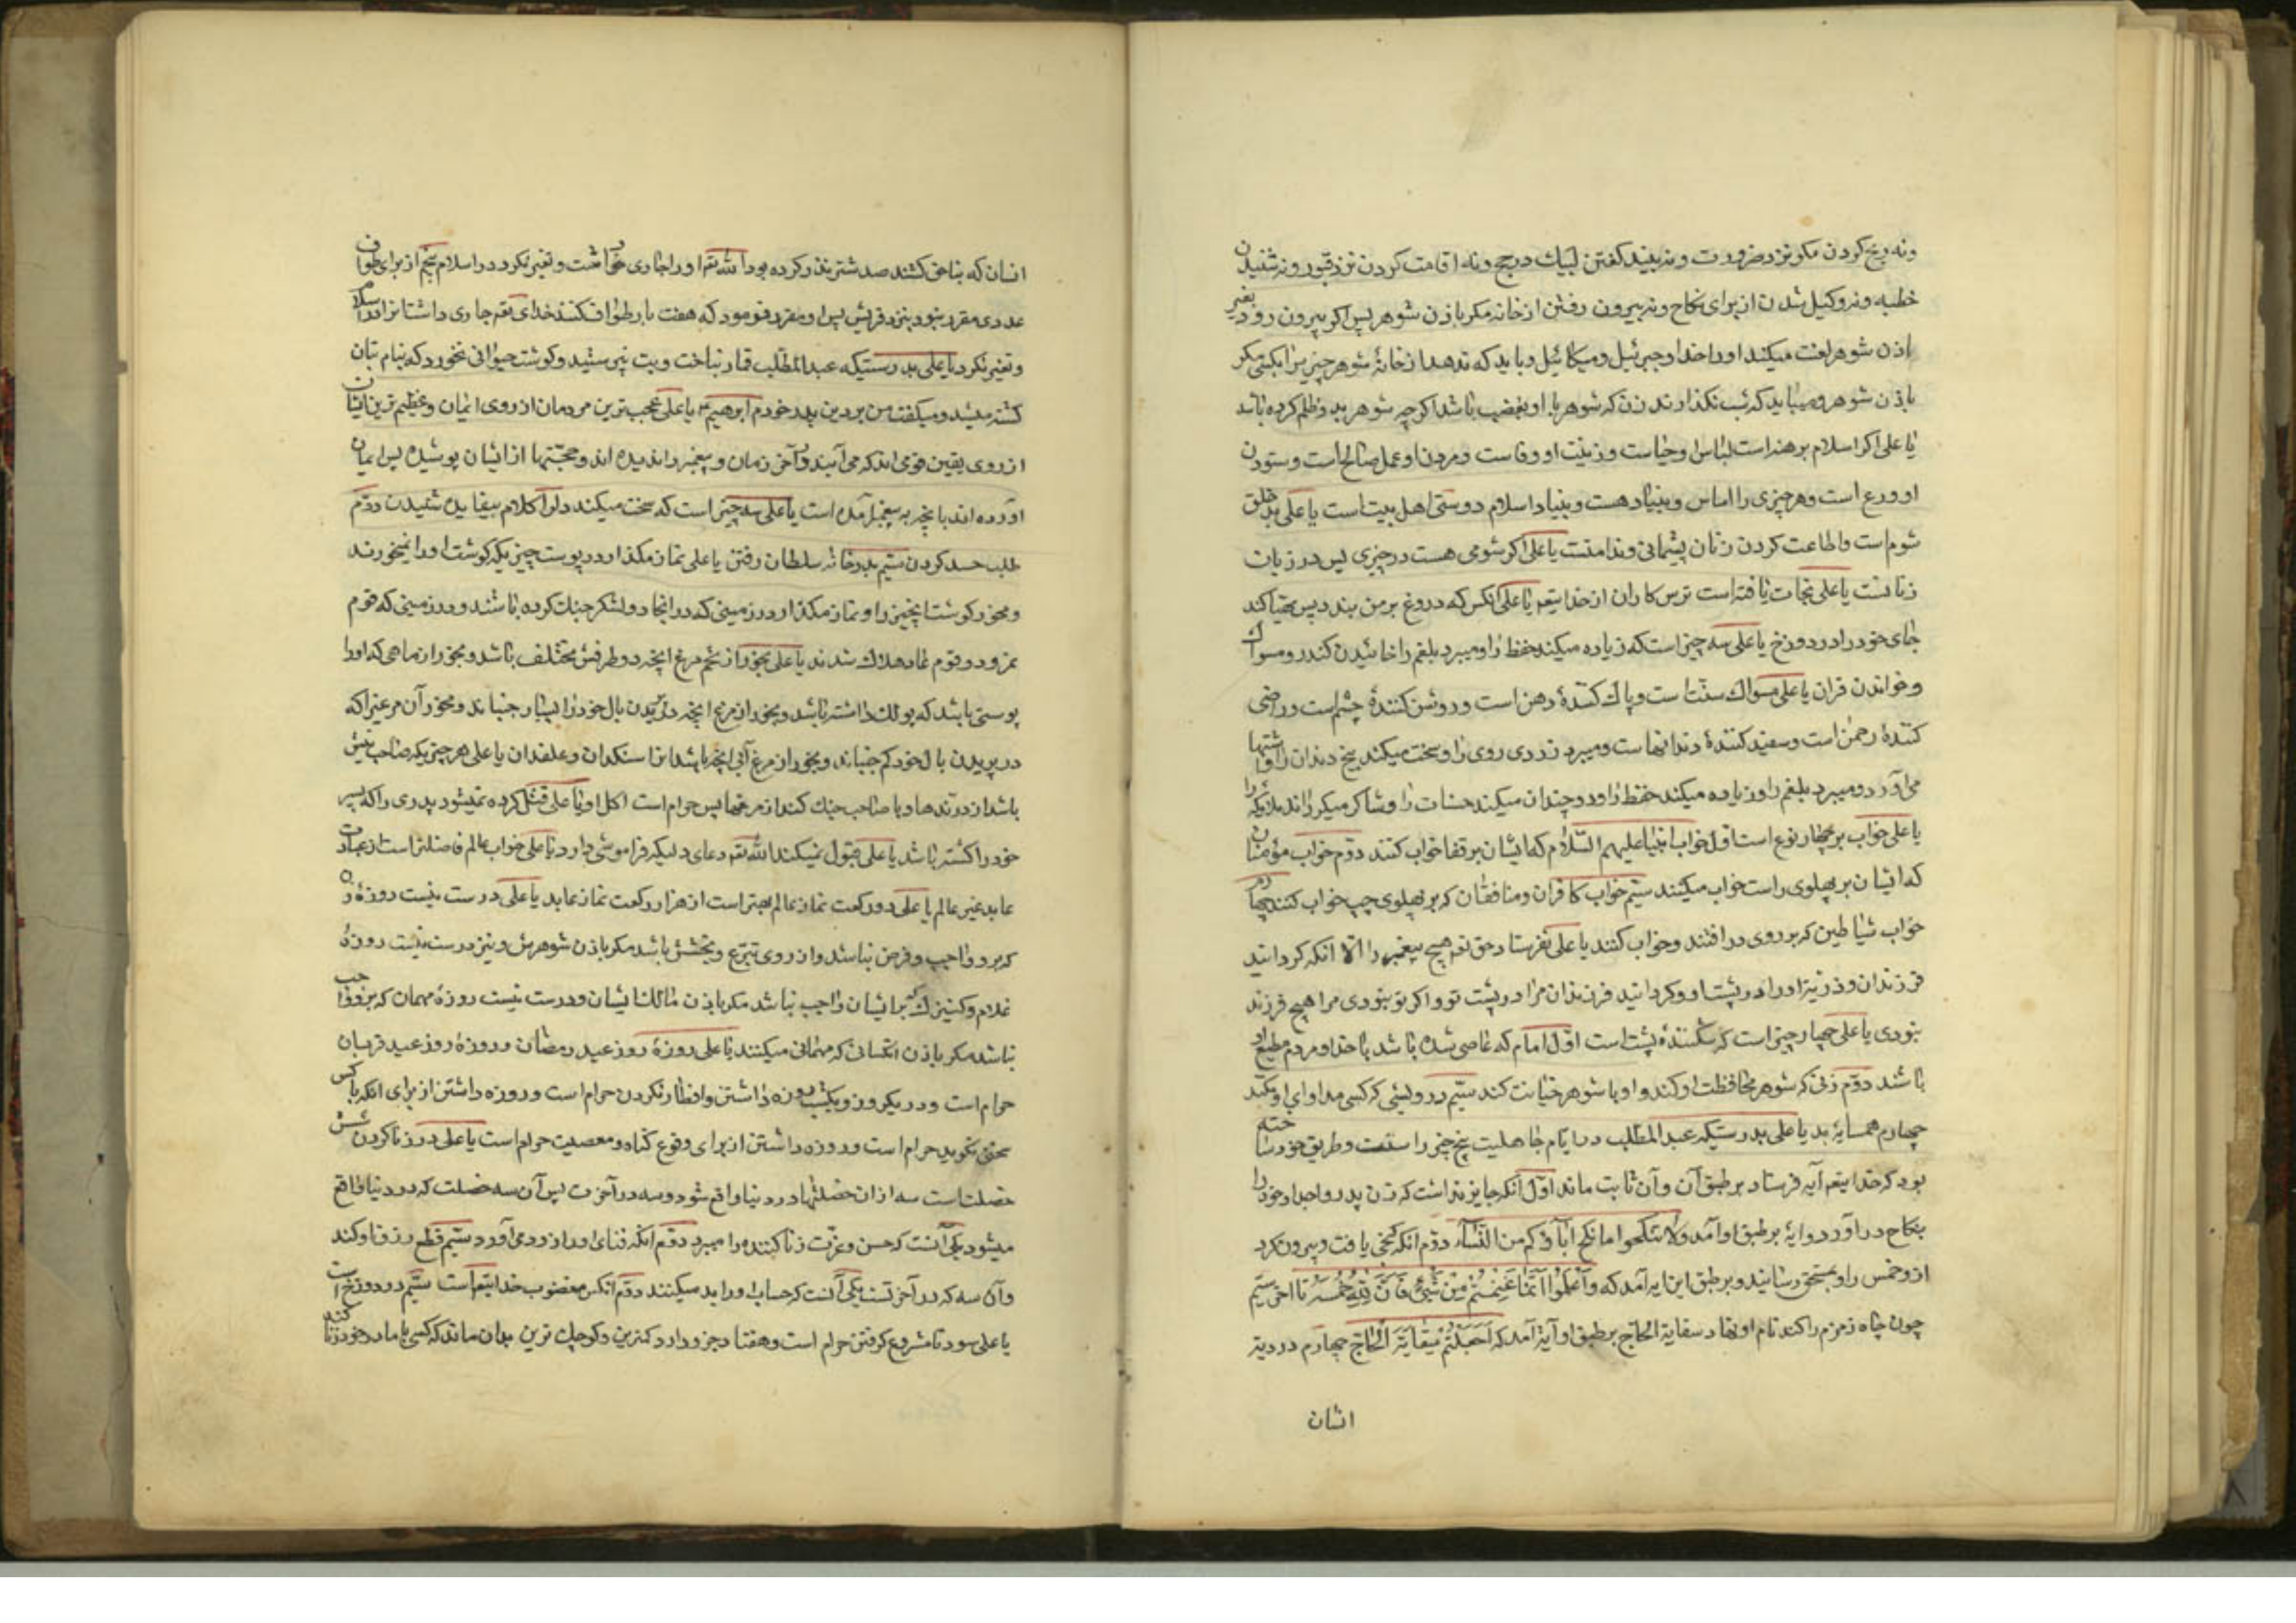 ونه ذبح کردن مکر نزد ضرورت ونه بلند کفتن لبیك در حج ونه اقامت کردن نزد قبور ونه شنیدن
خطبه ونه وکیل شدن از برای نکاح ونه بیرون رفتن از خانه مکر باذن شوهر پس اکر بیرون رود بغیر
اذن شوهر لعنت میکند او را خدا و جبرئیل و میکائیل و باید که ندهد از خانهٔ شوهر چیزیرا بکسی مکر
باذن شوهر و میباید که شب نکذارند زن که شوهر با او بغضب باشد اکرچه شوهر بد و ظلم کرده باشد
یا علی اکر اسلام برهنه است لباس او حیاست و زینت او وفاست و مردن او عمل صالح است و ستودن
او ورع است و هر چیزی را اساس و بنیاد هست و بنیاد اسلام دوستی اهل بیت است یا علی بد خلق
شوم است و اطاعت کردن زنان پشیمانی و ندامتست یا علی اکر شومی هست در چیزی پس در زبان
زنانست یا علی نجات یافته است ترس کاران از خدایتعم یا علی انکس که دروغ بر من بندد پس مهیا کند
جای خود را در دوزخ یا علی سه چیز است که زیاده میکند حفظ را و میبرد بلغم را خائیدن کندر و مسواك
و خواندن قران یا علی مسواك سنت است و پاك کنندهٔ دهن است و روشن کنندهٔ چشم است و راضی
کنندهٔ رحمن است و سفید کنندهٔ دندانها ست و میبرد زردی روی را و سخت میکند بیخ دندان را و اشتها
می آورد و میبرد بلغم را و زیاده میکند حفظ را و دو چندان میکند حسنات را و شاکر میکرداند ملائکه را
یا علی خواب بر چهار نوع است اول خواب انبیا علیهم السلام که ایشان بر قفا خواب کنند دوم خواب مؤمنان
که ایشان بر پهلوی راست خواب میکنند سیّم خواب کافران و منافقان که بر پهلوی چپ خواب کنند چهارم
خواب شیاطین که بر روی در افتند و خواب کنند یا علی نفرستاد حق تعم هیچ پیغمبر را الا انکه کردانید
فرزندان و ذریهٔ او را در پشت او و کردانید فرزندان مرا در پشت تو و اکر تو نبودی مرا هیچ فرزند
نبودی یا علی چهار چیز است که شکنندهٔ پشت است اوّل امام که عاصی شده باشد با خدا و مردم مطیع او
باشند دوّم زنی که شوهر محافظت او کند و او با شوهر خیانت کند سیّم درویشی که کسی مداوای او نکند
چهارم همسایهٔ بد یا علی بدرستیکه عبدالمطلب در ایّام جاهلیت پنج چیز را سنت و طریق خود ساخته
بود که خدایتعم آیه فرستاد بر طبق آن و آن ثابت ماند اوّل انکه جایز نداشت که زن پدر و اجداد خود را
بنکاح در آورد و ایهٔ بر طبق او آمد ولا تنکحوا ما نکح اباؤکم من النساء دوّم انکه کنجی یافت و بیرون کرد
ازو خمس را و بمستحق رسانید و بر طبق این ایه آمد که وَاعْلَمُوا اَنَّمَا غَنِمْتُمْ مِنْ شَیْءٍ فَاَنَّ لِلّٰهِ خُمُسَهُ تا اخر سیّم
چون چاه زمزم را کند نام او نهاد سقایة الحاج بر طبق او آیه آمد که اَجَعَلْتُمْ سِقَایَةَ الْحَاجِّ چهارم در دیهٔ
انسان
انسان که بناحق کشند صد شتر نذر کرده بود اللّه تعم او را جاری میداشت و تغیر نکرد در اسلام پنجم از برای طواف
عددی مقرر نبود بنزد قریش پس او مقرر فرمود که هفت بار طواف کنند خدای تعم جاری داشت انرا در اسلام
و تغیر نکرد یا علی بدرستیکه عبدالمطلب قمار نباخت و بت نپرستید و کوشت حیوانی نخورد که بنام بتان
کشته میشد و میکفت من بر دین پدر خودم ابرهیم یا علی عجب ترین مردمان از روی ایمان و عظیم ترین ایشان
از روی یقین قومی اند که می آیند در آخر زمان و پیغمبر را ندیده اند و حجتها از ایشان پوشیده پس ایمان
آورده اند بانچه به پیغمبر آمده است یا علی سه چیز است که سخت میکند دل را کلام بیفایده شنیدن دوّم
طلب حسد کردن سیّم بدر خانه سلطان رفتن یا علی نماز مکذار در پوست چیزیکه کوشت او را نمیخورند
و مخور کوشت انچیز را و نماز مکذار در زمینی که در انجا دو لشکر جنك کرده باشند و در زمینی که قوم
نمرود و قوم عاد هلاك شدند یا علی بخور از تخم مرغ انچه دو طرفش مختلف باشد و بخور از ماهی که او را
پوستی باشد که پولك داشته باشد و بخور از مرغ انچه در پریدن بال خود را بسیار جنباند و مخور آن مرغیرا که
در پریدن بال خود کم جنباند و بخور از مرغ آبی انچه باشد انرا سنکدان و علفدان یا علی هر چیزیکه صاحب نیش
باشد از درندها و یا صاحب چنك کند از مرغها پس حرام است اکل او یا علی قتل کرده نمیشود پدری را که پسر
خود را کشته باشد یا علی قبول نمیکند اللّه تعم دعای دلیکه فراموشی دارد یا علی خواب عالم فاضلتر است از عبادت
عابد غیر عالم یا علی دو رکعت نماز عالم بهتر است از هزار رکعت نماز عابد یا علی درست نیست روزهٔ زن
که برو واجب و فرض نباشد و از روی تبرّع و بخشش باشد مکر باذن شوهرش و نیز درست نیست روزهٔ
غلام و کنیزك که بر ایشان واجب نباشد مکر باذن مالك ایشان و درست نیست روزهٔ مهمان که برو واجب
نباشد مکر باذن انکسانی که مهمانی میکنند یا علی روزهٔ روز عید رمضان و روزهٔ روز عید قربان
حرام است و در یکروز و یکشب روزه داشتن و افطار نکردن حرام است و روزه داشتن از برای انکه با کس
سخن نکوید حرام است و روزه داشتن از برای وقوع کناه و معصیت حرام است یا علی در زنا کردن شش
خصلت است سه از ان خصلتها در دنیا واقع شود و سه در آخرت پس آن سه خصلت که در دنیا واقع
میشود یکی آنست که حسن و عزّت زنا کننده را میبرد دوّم انکه فنای او را زود می آورد سیّم قطع رزق او کند
و آن سه که در آخرتست یکی آنست که حساب او را بد میکنند دوّم انکس مغضوب خدایتعم است سیّم در دوزخ است
یا علی سود نامشروع کرفتن حرام است و هفتاد جزو دارد کمترین و کوچك ترین بدان ماند که کسی با مادر خود زنا کند